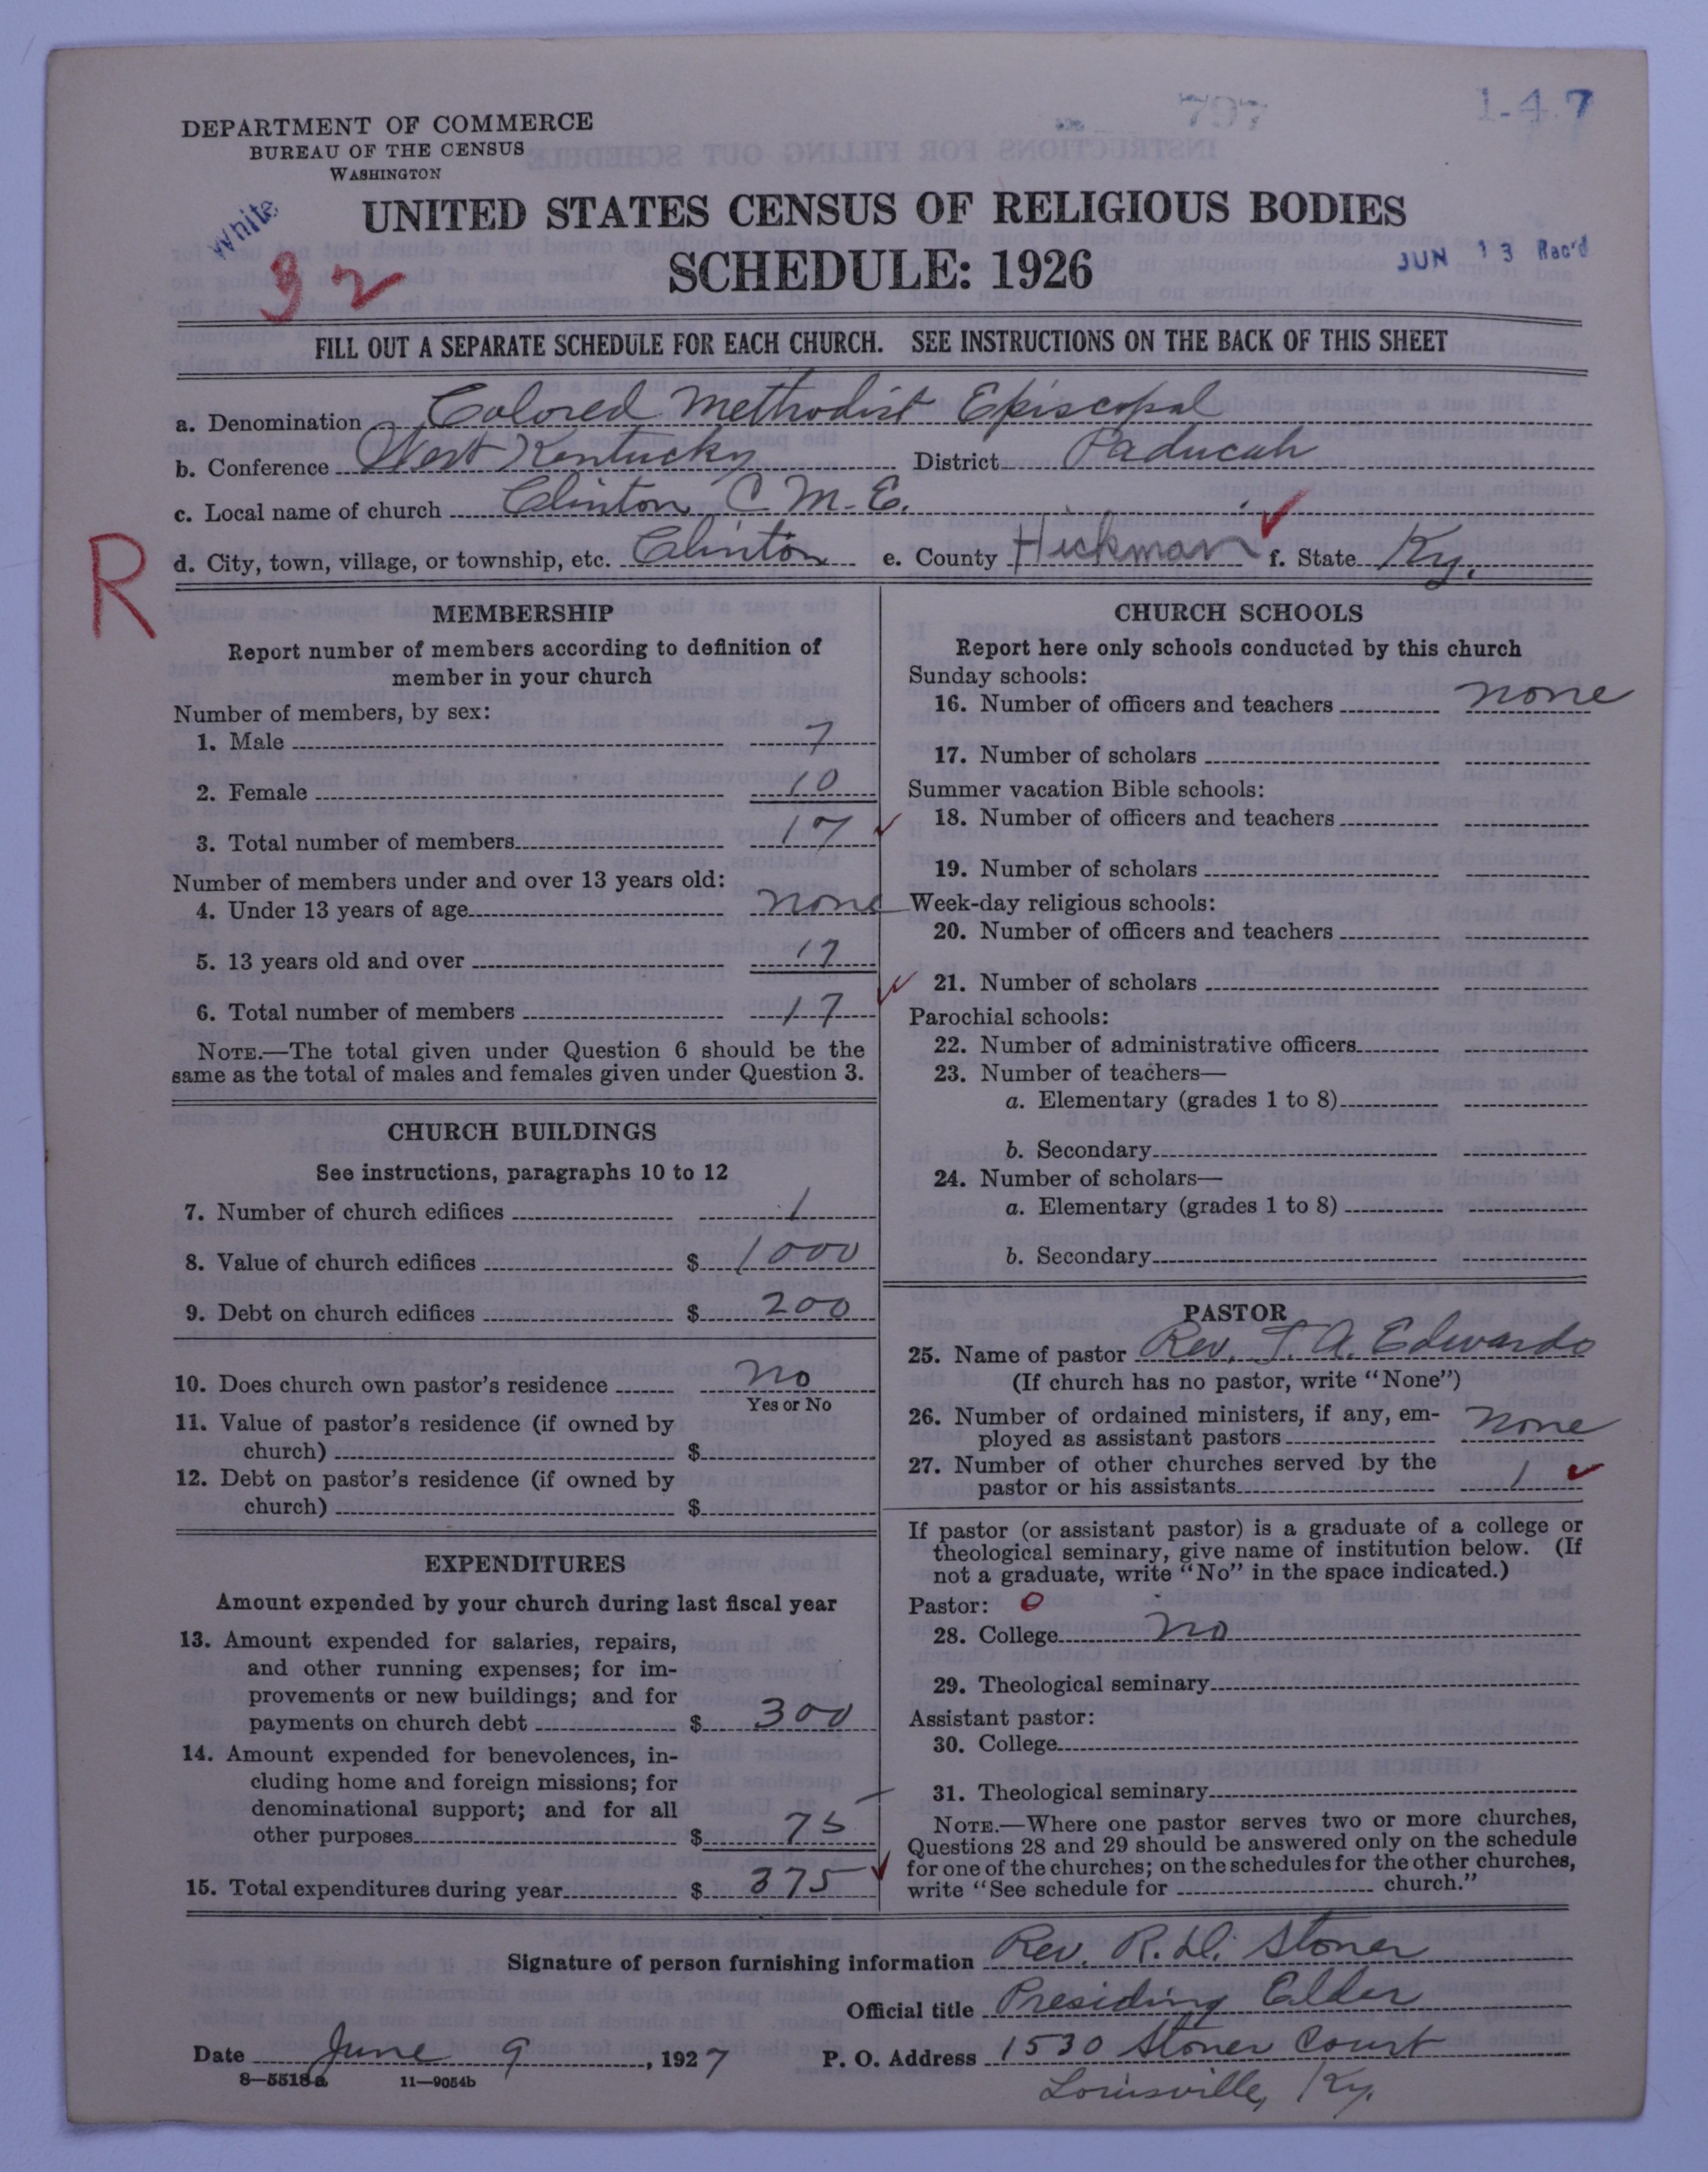 797
1-4 7
DEPARTMENT OF COMMERCE
BUREAU OF THE CENSUS
WASHINGTON
White
32
UNITED STATES CENSUS OF RELIGIOUS BODIES
SCHEDULE: 1926
JUN 13 Rec'd
FILL OUT A SEPARATE SCHEDULE FOR EACH CHURCH. SEE INSTRUCTIONS ON THE BACK OF THIS SHEET
a. Denomination Colored Methodist Episcopal
b. Conference West Kentucky District Paducah
c. Local name of church Clinton C. M. E.
R
d. City, town, village, or township, etc. Clinton e. County Hickman f. State Ky.
MEMBERSHIP
Report number of members according to definition of
member in your church
Number of members, by sex:
1. Male 7
2. Female 10
3. Total number of members 17
Number of members under and over 13 years old:
4. Under 13 years of age none
5. 13 years old and over 17
6. Total number of members 17
NOTE.—The total given under Question 6 should be the
same as the total of males and females given under Question 3.
CHURCH BUILDINGS
See instructions, paragraphs 10 to 12
7. Number of church edifices 1
8. Value of church edifices $ 1000
9. Debt on church edifices $ 200
10. Does church own pastor's residence no
Yes or No
11. Value of pastor's residence (if owned by
church) $
12. Debt on pastor's residence (if owned by
church) $
EXPENDITURES
Amount expended by your church during last fiscal year
13. Amount expended for salaries, repairs,
and other running expenses; for im-
provements or new buildings; and for
payments on church debt $ 300
14. Amount expended for benevolences, in-
cluding home and foreign missions; for
denominational support; and for all
other purposes $ 75
15. Total expenditures during year $ 375
CHURCH SCHOOLS
Report here only schools conducted by this church
Sunday schools:
16. Number of officers and teachers none
17. Number of scholars
Summer vacation Bible schools:
18. Number of officers and teachers
19. Number of scholars
Week-day religious schools:
20. Number of officers and teachers
21. Number of scholars
Parochial schools:
22. Number of administrative officers
23. Number of teachers—
a. Elementary (grades 1 to 8)
b. Secondary
24. Number of scholars—
a. Elementary (grades 1 to 8)
b. Secondary
PASTOR
25. Name of pastor Rev. T. A. Edwards
(If church has no pastor, write "None")
26. Number of ordained ministers, if any, em-
ployed as assistant pastors none
27. Number of other churches served by the
pastor or his assistants 1
If pastor (or assistant pastor) is a graduate of a college or
theological seminary, give name of institution below. (If
not a graduate, write "No" in the space indicated.)
Pastor: 0
28. College no
29. Theological seminary
Assistant pastor:
30. College
31. Theological seminary
NOTE.—Where one pastor serves two or more churches,
Questions 28 and 29 should be answered only on the schedule
for one of the churches; on the schedules for the other churches,
write "See schedule for church."
Signature of person furnishing information Rev. R. D. Stoner
Official title Presiding Elder
Date June 9, 1927 P. O. Address 1530 Stoner Court
8—5518a 11—9054b
Louisville, Ky.